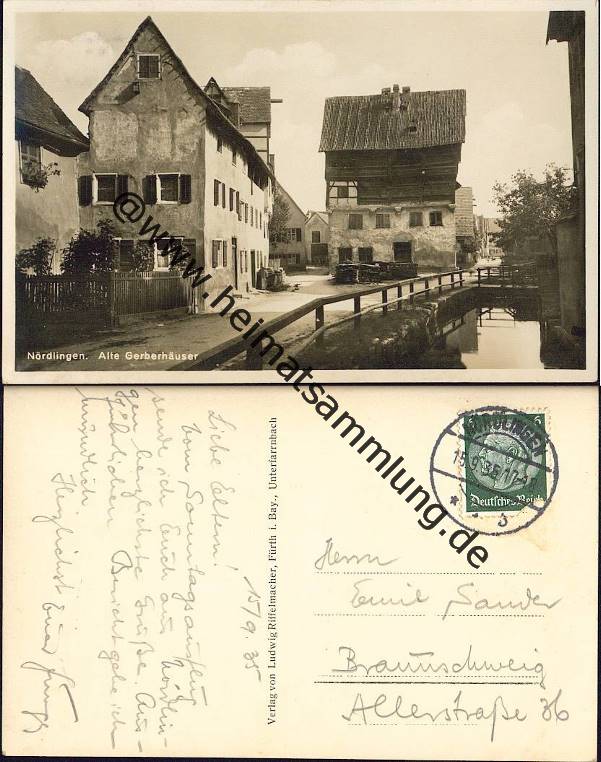 Nördlingen. Alte Gerberhäuser
@www.heimatsammlung.de
15/9.35
Liebe Eltern!
Vom Sonntagsausflug
sende ich Euch aus Nördlin-
gen herzlichste Grüße. Aus-
führlichen Bericht gebe ich
mündlich.
Herzlichst Euer
Verlag von Ludwig Riffelmacher, Fürth i. Bay., Unterfarrnbach
NÖRDLINGEN
15.9.35
6
Deutsches Reich
Herrn
Emil Sander
Braunschweig
Allerstraße 36